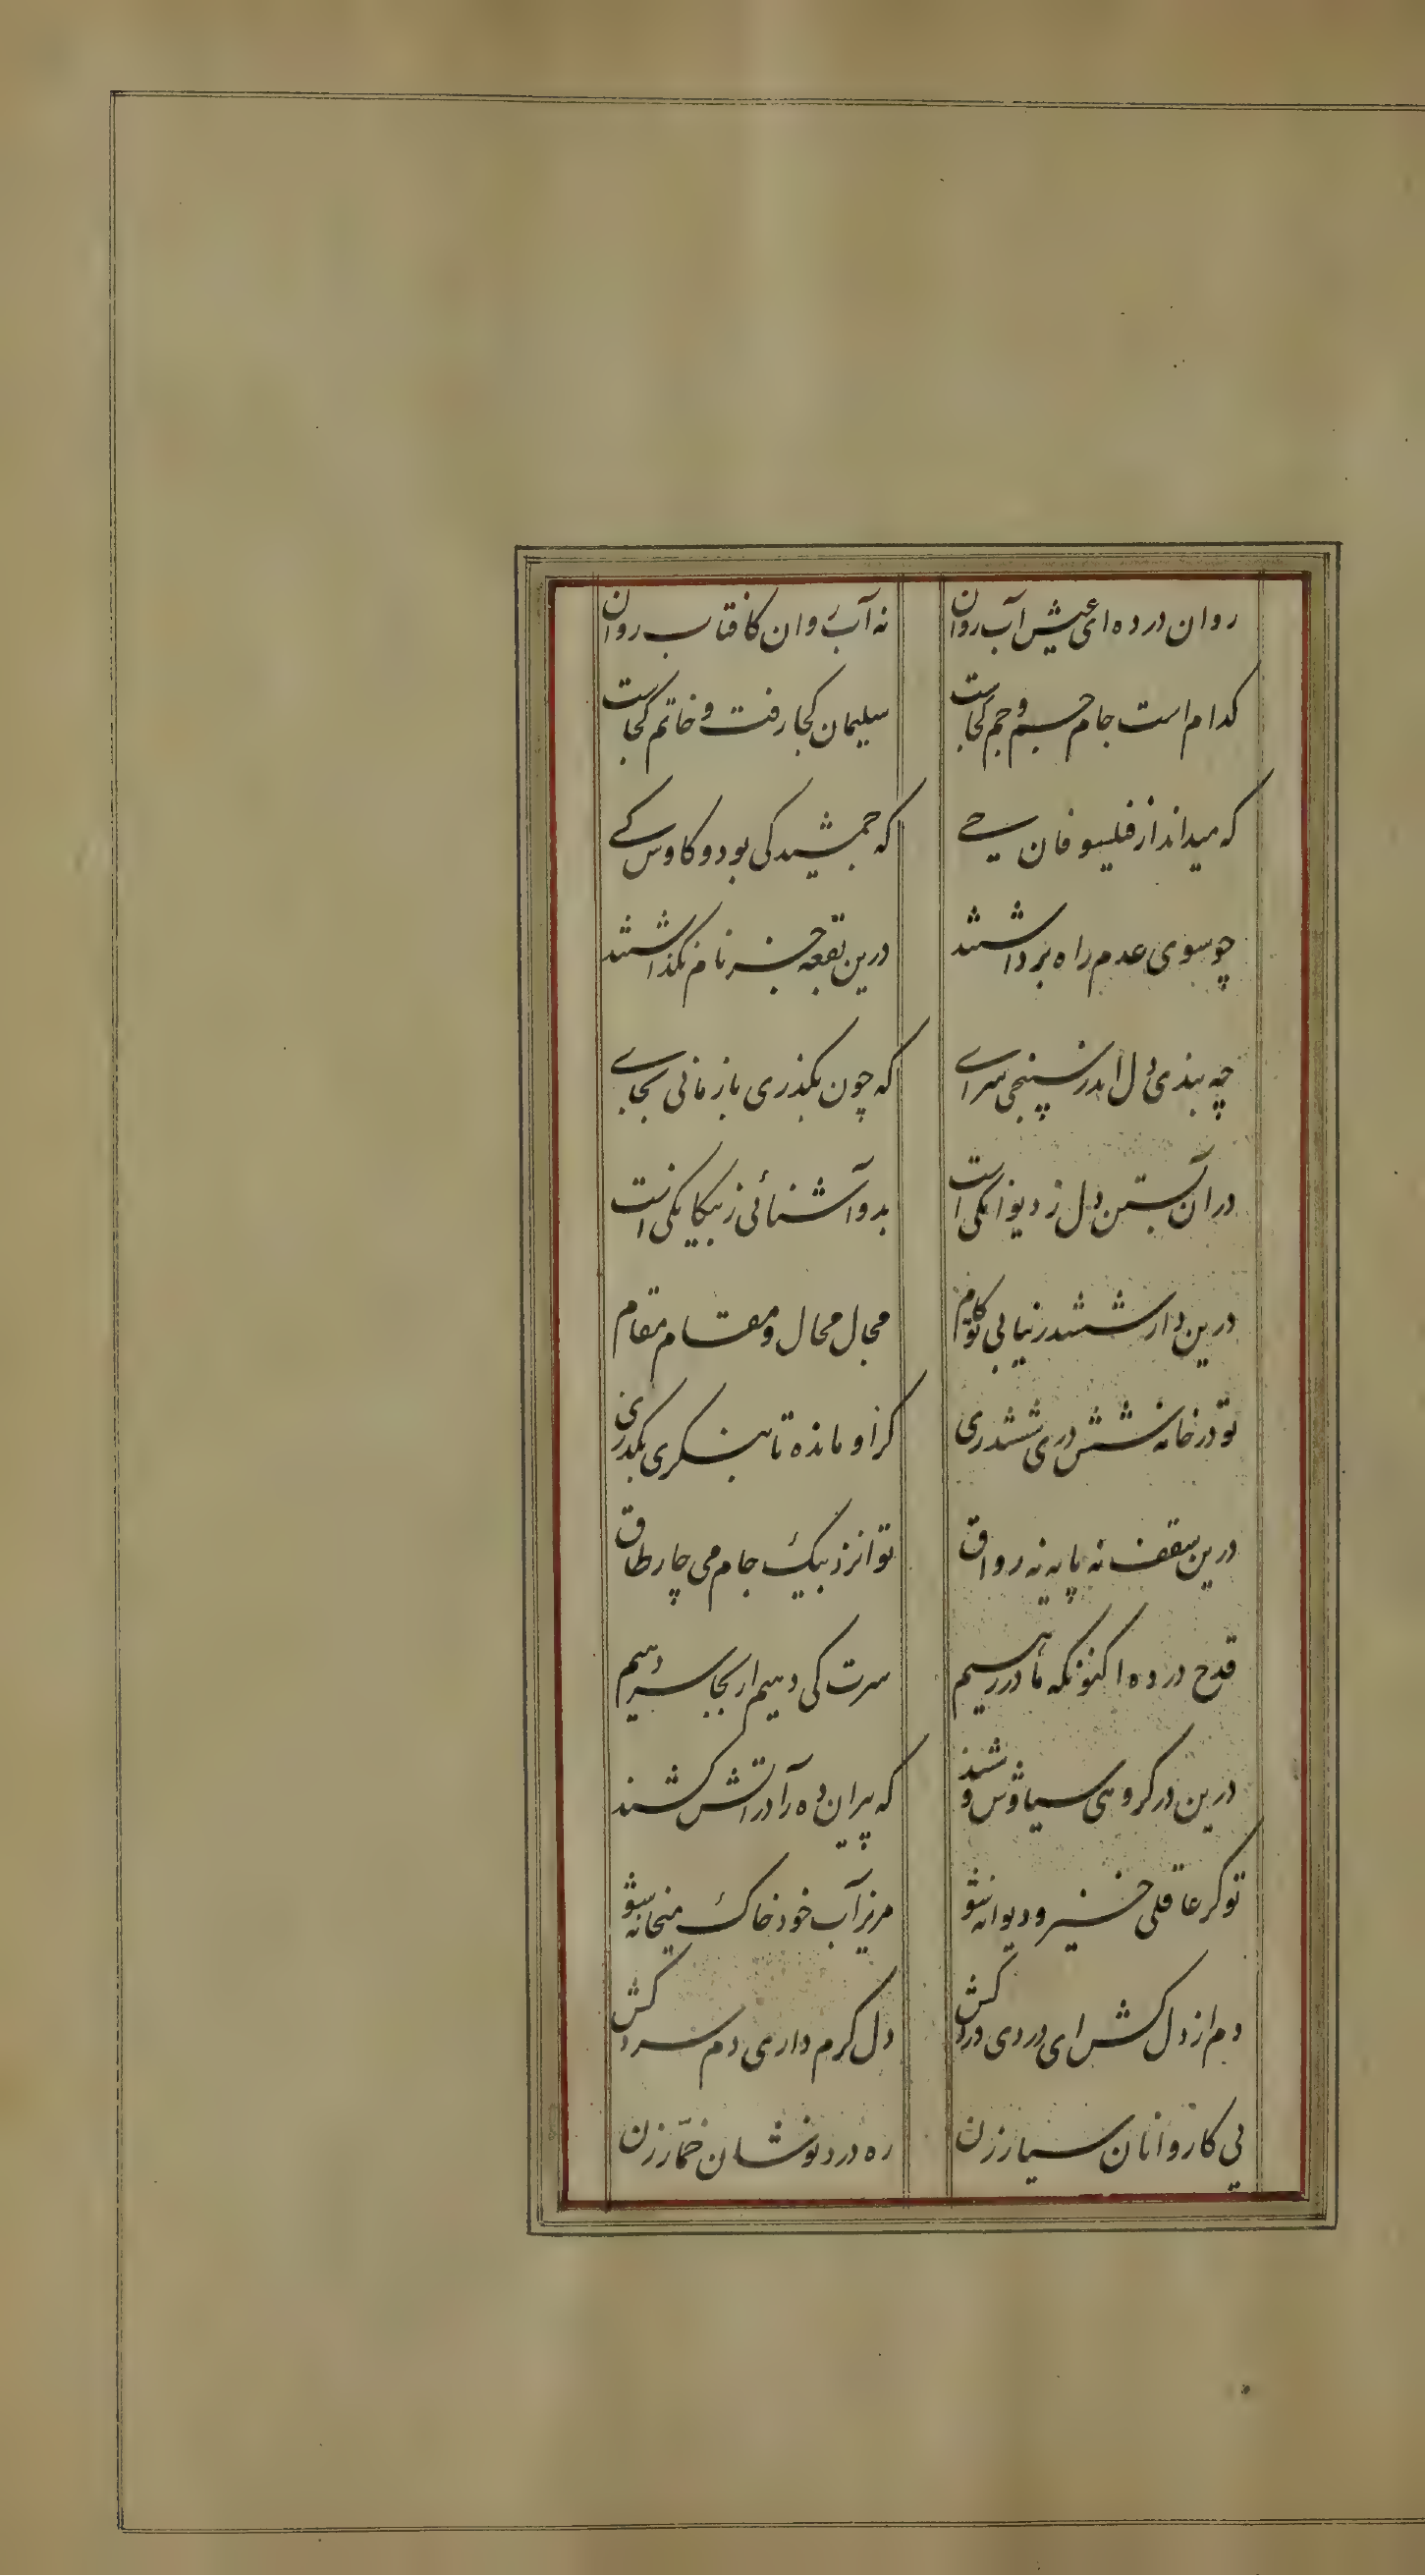 روان درده ای عیش آب روان
نه آب روان کافتاب روان
کدام است جام جم و جم کجاست
سلیمان کجا رفت و خاتم کجاست
که میداند از فیلسوفان حی
که جمشید کی بود و کاوس کے
چو سوی عدم راه برداشتند
درین بقعه جز نام نگذاشتند
چه بندی دل اندر سپنجی سرای
که چون بگذری باز مانی بجای
در آن بستن دل ز دیوانگی است
بدو آشنائی ز بیگانگی است
درین دار ششدر نیابی تو کام
مجال محال و مقام مقام
تو در خانه شش دری ششدری
کزاو مانده تا بنگری بگذری
درین سقف نه پایه نه رواق
توانزد بیک جام می چار طاق
قدح درده اکنونکه ما دررهیم
سرت کی دهیم ار بجا سر دهیم
درین در گروهی سیاوش وشند
که پیران ده را در آتش کشند
تو گر عاقلی خیز و دیوانه شو
مریز آب خود خاک میخانه شو
دم از دل کش ای دردی درد کش
دل گرم داری دم سرد کش
پی کاروانان سیار زن
ره دردنوشان خمّار زن